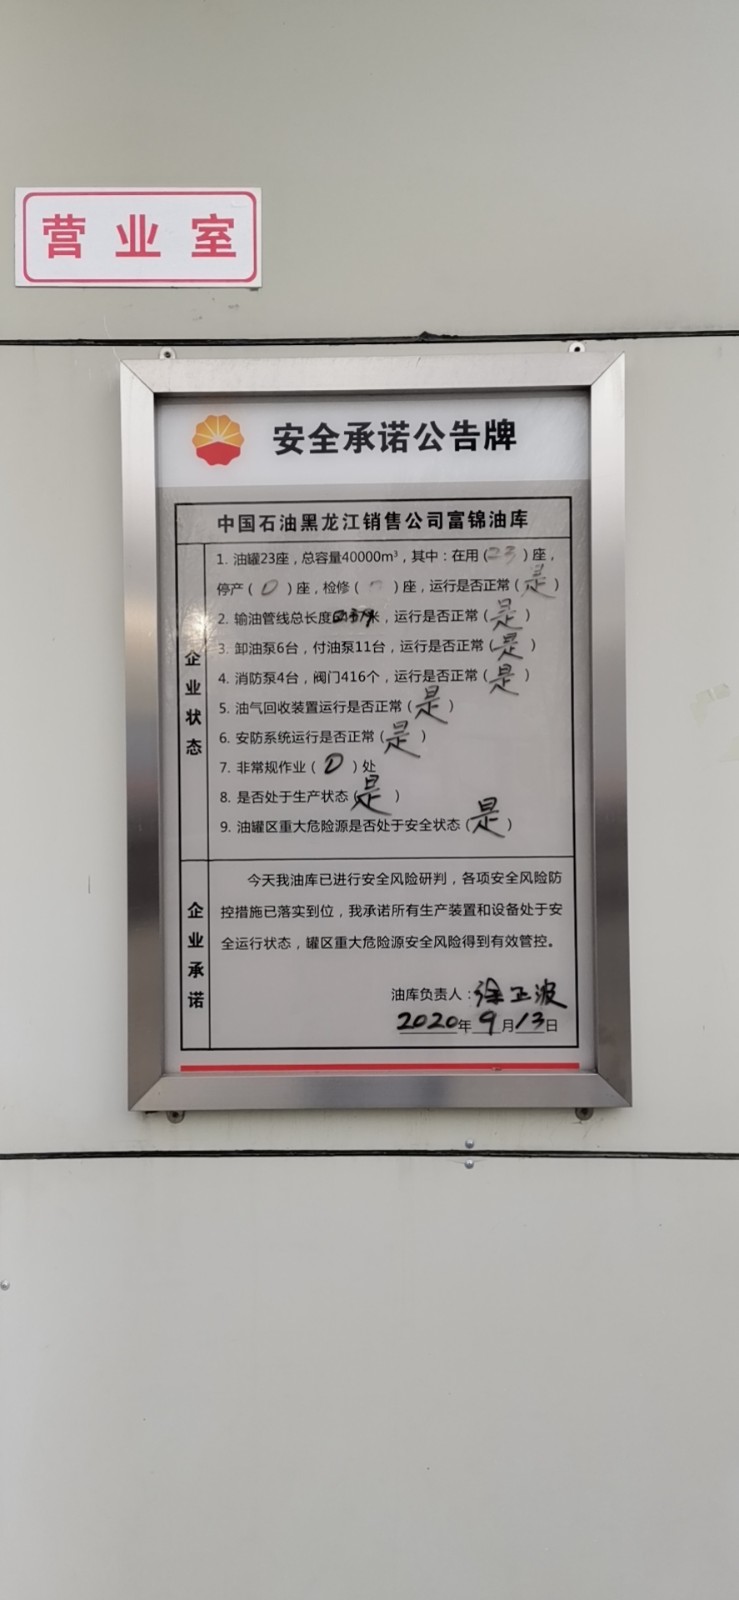 营业室
安全承诺公告牌
中国石油黑龙江销售公司富锦油库
企业状态
1. 油罐23座，总容量40000m³，其中：在用（23）座，
停产（0）座，检修（ ）座，运行是否正常（是）
2. 输油管线总长度 米，运行是否正常（是）
3. 卸油泵6台，付油泵11台，运行是否正常（是）
4. 消防泵4台，阀门416个，运行是否正常（是）
5. 油气回收装置运行是否正常（是）
6. 安防系统运行是否正常（是）
7. 非常规作业（0）处
8. 是否处于生产状态（是）
9. 油罐区重大危险源是否处于安全状态（是）
企业承诺
今天我油库已进行安全风险研判，各项安全风险防
控措施已落实到位，我承诺所有生产装置和设备处于安
全运行状态，罐区重大危险源安全风险得到有效管控。
油库负责人：徐正波
2020年9月13日